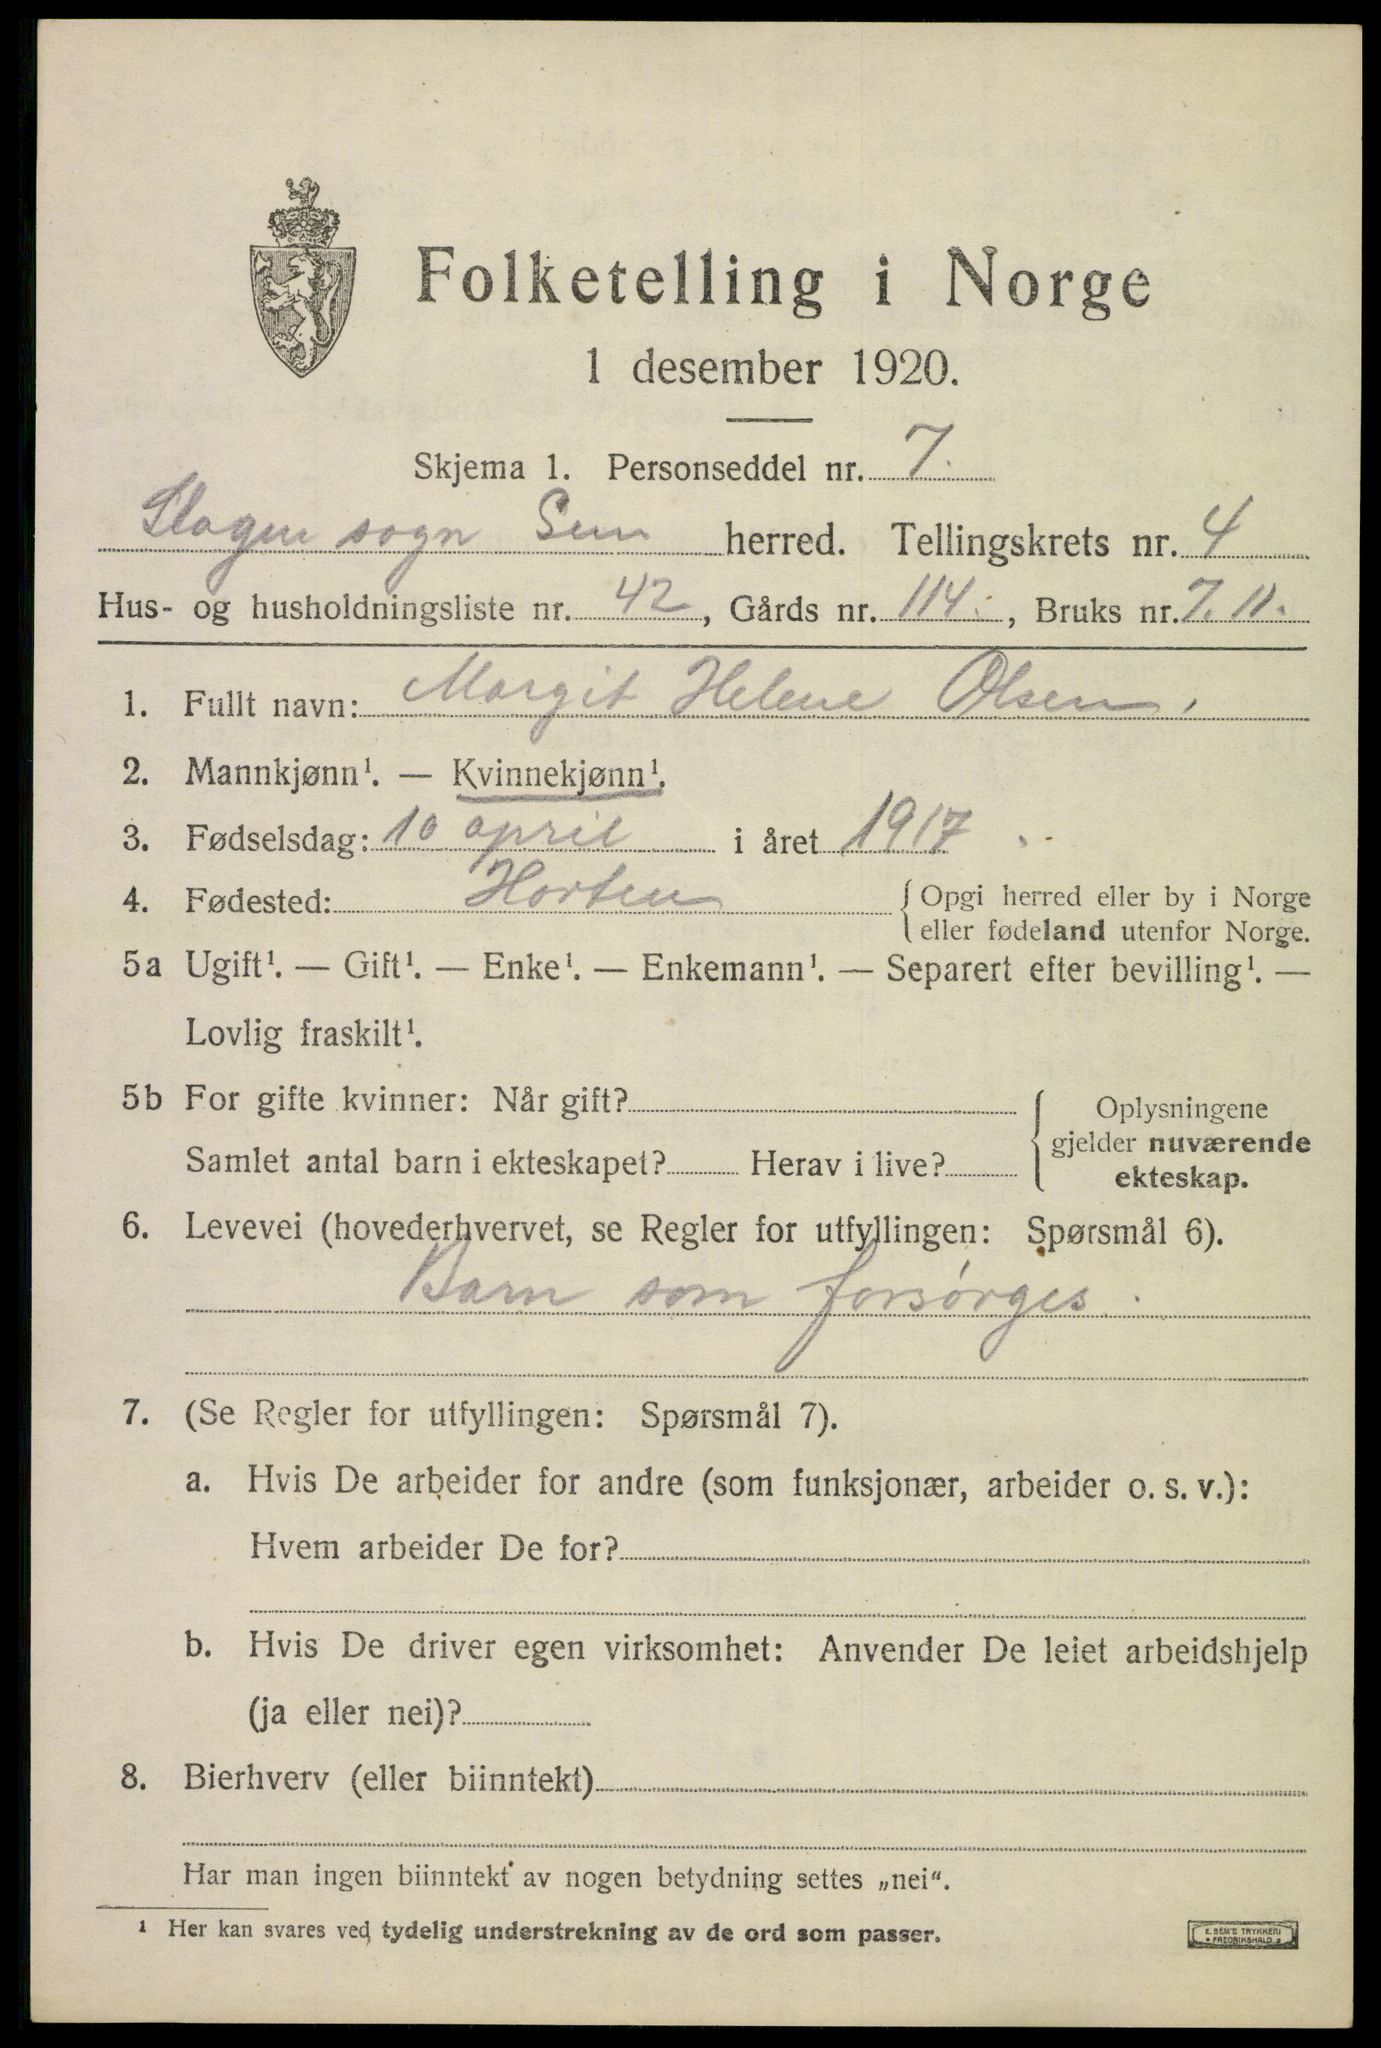 Folketelling i Norge
1 desember 1920.
Skjema 1. Personseddel nr. 7.
Slagen sogn Sem herred. Tellingskrets nr. 4
Hus- og husholdningsliste nr. 42, Gårds nr. 114., Bruks nr. 7.11.
1. Fullt navn: Margit Helene Olsen.
2. Mannkjønn¹. — Kvinnekjønn¹.
3. Fødselsdag: 10 april i året 1917
4. Fødested: Horten { Opgi herred eller by i Norge
eller fødeland utenfor Norge.
5a Ugift¹. — Gift¹. — Enke¹. — Enkemann¹. — Separert efter bevilling¹. —
Lovlig fraskilt¹.
5b For gifte kvinner: Når gift? { Oplysningene
gjelder nuværende
Samlet antal barn i ekteskapet? Herav i live?
ekteskap.
6. Levevei (hovederhvervet, se Regler for utfyllingen: Spørsmål 6).
Barn som forsørges.
7. (Se Regler for utfyllingen: Spørsmål 7).
a. Hvis De arbeider for andre (som funksjonær, arbeider o. s. v.):
Hvem arbeider De for?
b. Hvis De driver egen virksomhet: Anvender De leiet arbeidshjelp
(ja eller nei)?
8. Bierhverv (eller biinntekt)
Har man ingen biinntekt av nogen betydning settes „nei“.
¹ Her kan svares ved tydelig understrekning av de ord som passer.
E. SEM'S TRYKKERI
FREDRIKSHALD